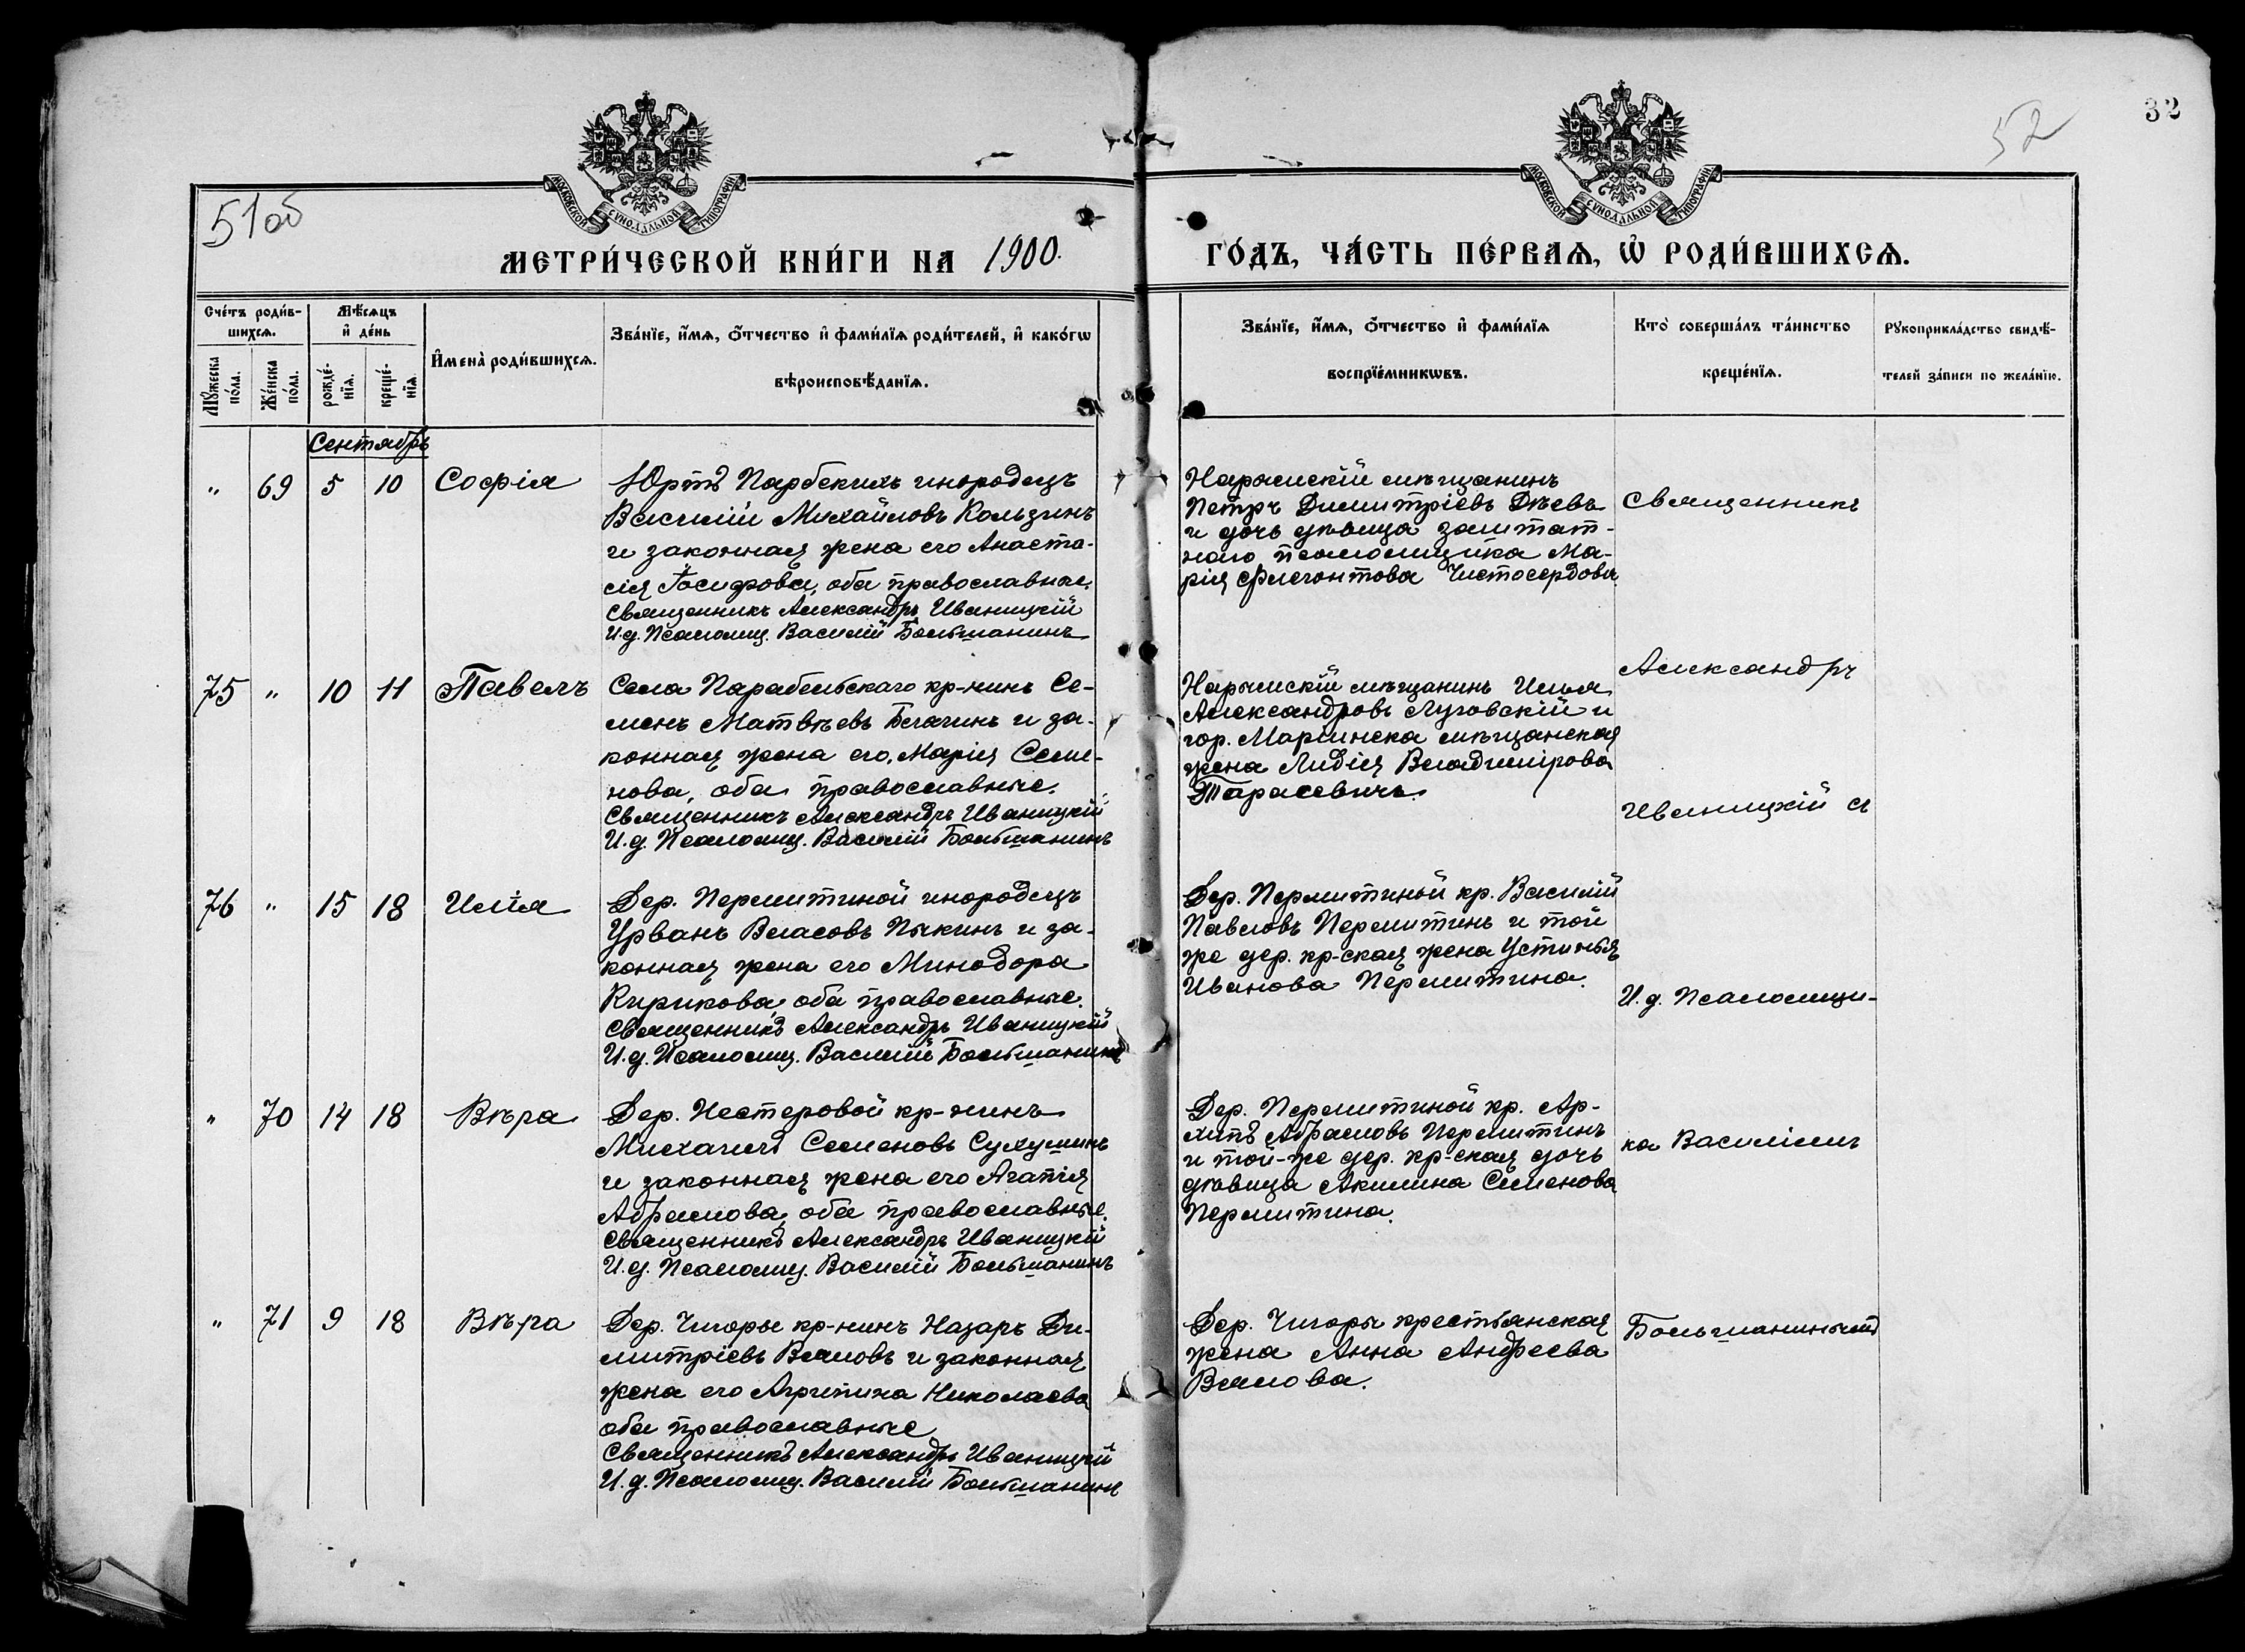 32
52
51 об
МОСКОВСКОЙ СУНОДАЛЬНОЙ ТИПОГРАФІИ
МОСКОВСКОЙ СУНОДАЛЬНОЙ ТИПОГРАФІИ
МЕТРИ́ЧЕСКОЙ КНИ́ГИ НА 1900.
ГО́ДЪ, ЧА́СТЬ ПЕ́РВАѦ, Ѡ҆ РОДИ́ВШИХСѦ.
Сче́тъ роди́в-
шихсѧ.
Мꙋ́жеска
по́ла.
Же́нска
по́ла.
Мѣ́сѧцъ
и҆ де́нь
рожде́-
нїѧ.
креще́-
нїѧ
И҆мена̀ роди́вшихсѧ.
Зва́нїе, и҆́мѧ, ѻ҆́тчество и҆ фами́лїѧ роди́телей, и҆ како́гѡ
вѣроисповѣ́данїѧ.
Зва́нїе, и҆́мѧ, ѻ҆́тчество и҆ фами́лїѧ
воспрїе́мникѡвъ.
Кто̀ соверша́лъ та́инство
креще́нїѧ.
Рꙋкоприкла́дство свидѣ́-
телей за́писи по жела́нїю.
Сентябрь
" 69 5 10 Софія
Юртъ Парбскихъ инородецъ
Василій Михайловъ Кользинъ
и законная жена его Анаста-
сія Іосифова, оба православные.
Священникъ Александръ Иваницкій
И.д. Псаломщ. Василій Большанинъ
Нарымскій мѣщанинъ
Петръ Димитріевъ Дѣевъ
и дочь дѣвица заштат-
наго псаломщика Ма-
рія Флегонтова Чистосердова.
75 " 10 11 Павелъ
Села Парабельскаго кр-нинъ Се-
менъ Матвѣевъ Бегачинъ и за-
конная жена его, Марія Семе-
нова, оба православные.
Священникъ Александръ Иваницкій
И.д. Псаломщ. Василій Большанинъ
Нарымскій мѣщанинъ Илья
Александровъ Луговскій и
гор. Маріинска мѣщанская
жена Лидія Владимірова
Тарасевичъ.
76 " 15 18 Илія
Дер. Пермитиной инородецъ
Урванъ Власовъ Пыкинъ и за-
конная жена его Минодора
Кирикова, оба православные.
Священникъ Александръ Иваницкій
И.д. Псаломщ. Василій Большанинъ
Дер. Пермитиной кр. Василій
Павловъ Пермитинъ и той
же дер. кр-ская жена Устинья
Иванова Пермитина.
" 70 14 18 Вѣра
Дер. Нестеровой кр-нинъ
Михаилъ Семеновъ Сухушинъ
и законная жена его Агапія
Абрамова, оба православные.
Священникъ Александръ Иваницкій
И.д. Псаломщ. Василій Большанинъ
Дер. Пермитиной кр. Ар-
хипъ Абрамовъ Пермитинъ
и той-же дер. кр-ская дочь
дѣвица Акилина Семенова
Пермитина.
" 71 9 18 Вѣра
Дер. Чигоры кр-нинъ Назаръ Ди-
митріевъ Вялов и законная
жена его Агрипина Николаева
оба православные
Священникъ Александръ Иваницкій
И.д. Псаломщ. Василій Большанинъ
Дер. Чигоры крестьянская
жена Анна Андреева
Вялова.
Священникъ
Александръ
Иваницкій съ
И.д. Псаломщи-
ка Василіемъ
Большанинымъ